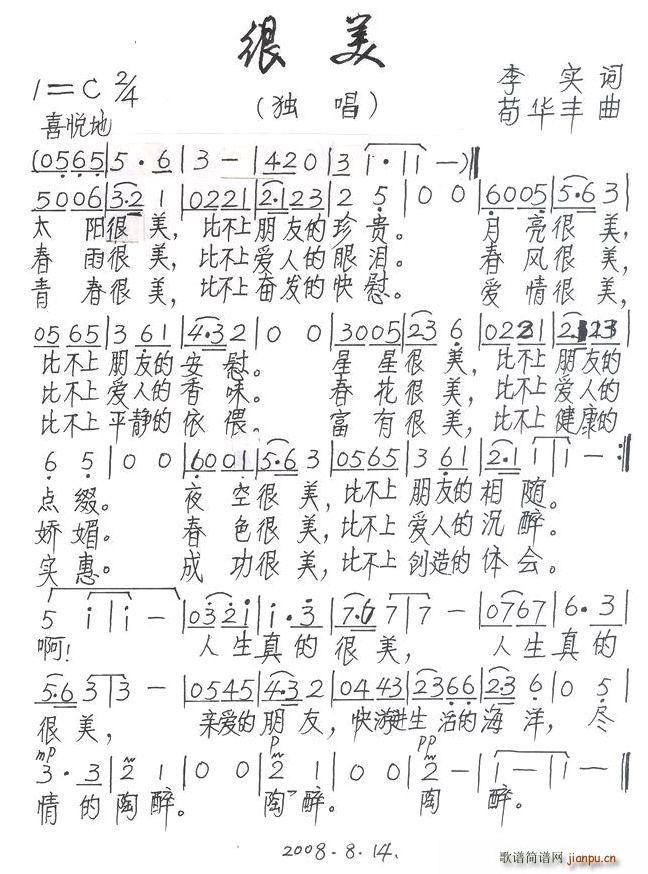 很 美
1=C 2/4
(独 唱)
李 实 词
荀华丰 曲
喜悦地
(0565|5·6|3-|4·20|3 1·|1 1 -)‖
5006|3·2 1|0221|2·123|2 5|0 0|6005|5·63|
太 阳很 美, 比不上朋友的珍 贵。 月 亮很 美,
春 雨很 美, 比不上爱人的眼 泪。 春 风很 美,
青 春很 美, 比不上奋发的快 慰。 爱 情很 美,
0565|3 61|4·3 2|0 0|3005|23 6|0221|2·123|
比不上 朋友的 安 慰。 星 星很 美, 比不上 朋友的
比不上 爱人的 香 味。 春 花很 美, 比不上 爱人的
比不上 平静的 依 偎。 富 有很 美, 比不上 健康的
6 5|0 0|6001|5·6 3|0565|3 61|2·1 1|1 -:‖
点 缀。 夜 空很 美, 比不上 朋友的 相 随。
娇 媚。 春 色很 美, 比不上 爱人的 沉 醉。
实 惠。 成 功很 美, 比不上 创造的 体 会。
5 i|i -|032i|i·3|7·67|7 -|0767|6·3|
啊! 人生真的 很 美, 人生真 的
5·63|3 -|0545|4·32|0443|2366|2·36|0 5|
很 美, 亲爱的 朋 友, 快游进生 活的海 洋, 尽
mp p pp
3·3|2 1|0 0|2 1|0 0|2 -|1 -|1 -‖
情 的陶 醉。 陶 醉。 陶 醉。
2008.8.14.
歌谱简谱网
jianpu.cn